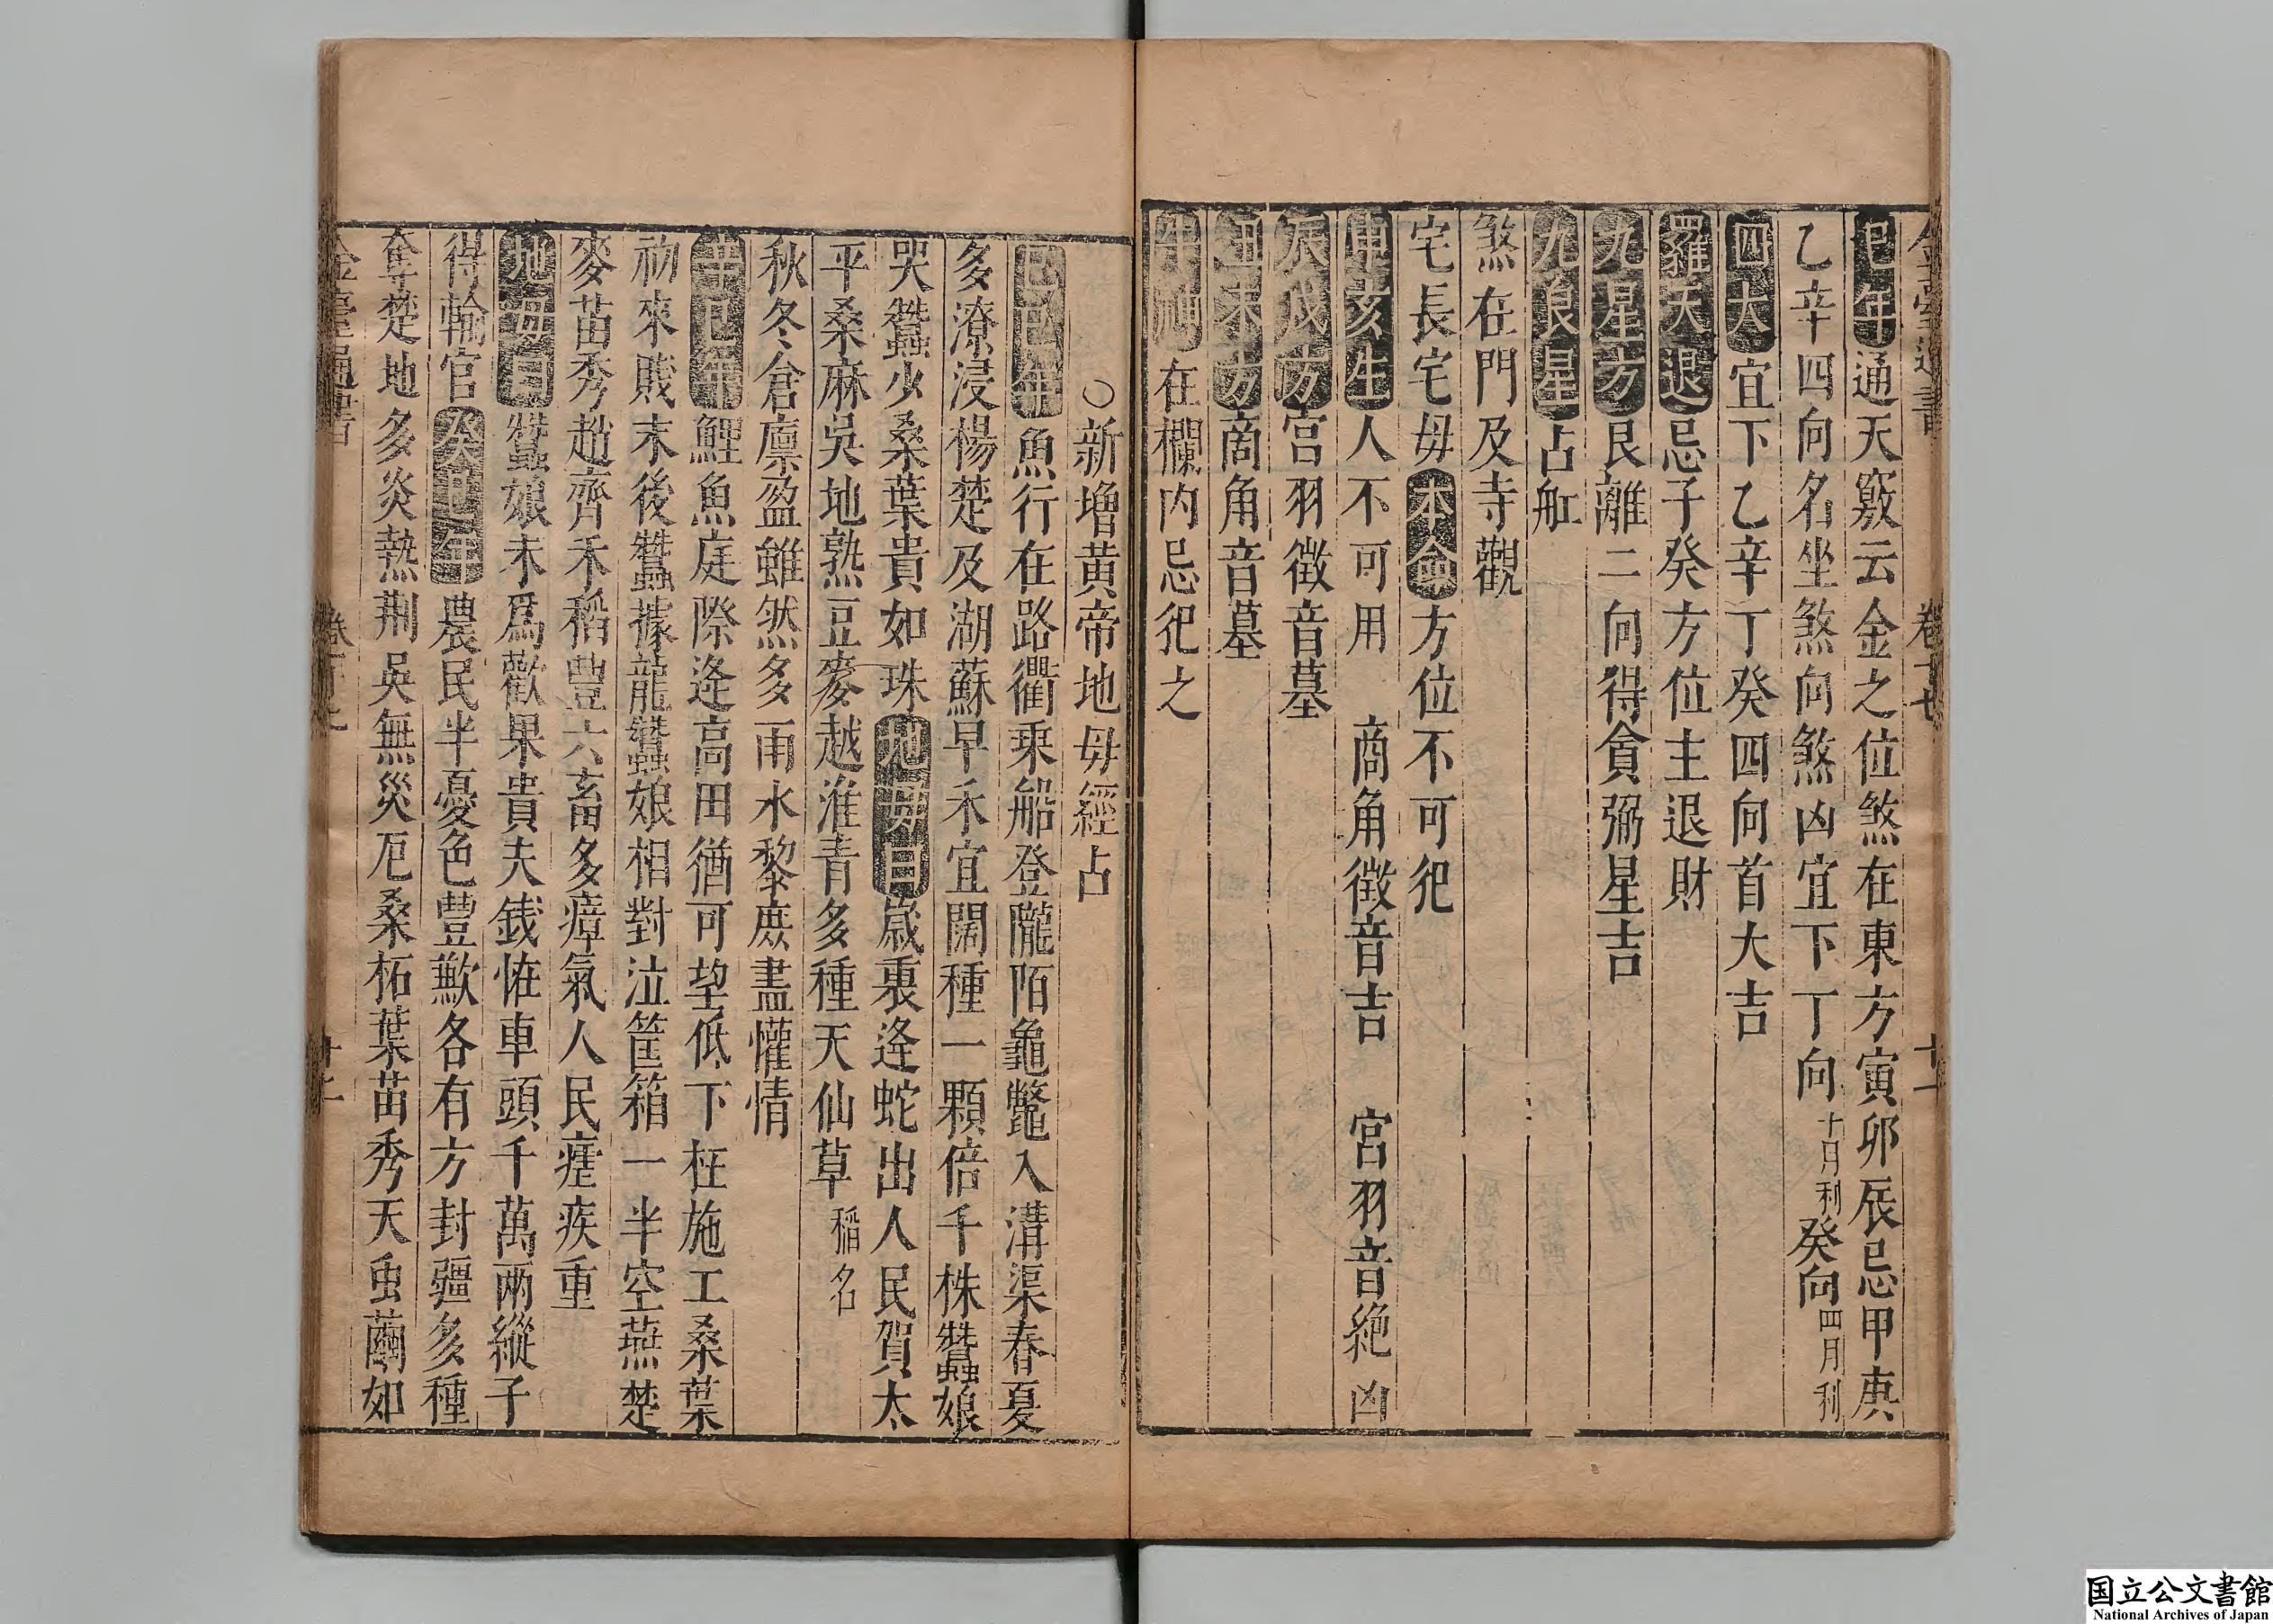 巳年通天竅云金之位煞在東方寅卯辰忌甲庚
乙辛四向名坐煞向煞凶宜下丁向十月利癸向四月利
四大宜下乙辛丁癸四向首大吉
羅天退忌子癸方位主退財
九星方艮離二向得貪弼星吉
九良星占舡
煞在門及寺觀
宅長宅母本命方位不可犯
申亥生人不可用 商角徵音吉 宮羽音絶凶
辰戌方宫羽徵音墓
丑未方商角音墓
牛神在欄内忌犯之
金臺通書 卷十七 十一
〇新增黄帝地母經占
己巳年魚行在路衢乗船登隴陌龜鼈入溝渠春夏
多潦浸楊楚及湖蘇早禾宜闊種一顆倍千株蠶娘
哭蠶少桑葉貴如珠地母曰歲裏逢蛇出人民賀太
平桑麻吳地熟豆麥越淮青多種天仙草稲名
秋冬倉廪盈雖然多雨水黎庶盡懽情
辛巳年鯉魚庭際逢高田猶可望低下枉施工桑葉
初來賎末後蠶據龍蠶娘相對泣筐箱一半空燕楚
麥苗秀趙齊禾稻豐六畜多瘴氣人民瘧疾重
地母曰蠶娘未爲歡果貴夫銭怪車頭千萬兩縱子
得輸官癸巳年農民半憂色豐歉各有方封疆多種
奪楚地多炎熱荆吳無災厄桑柘葉苗秀天虫繭如
金臺通書
国立公文書館
National Archives of Japan